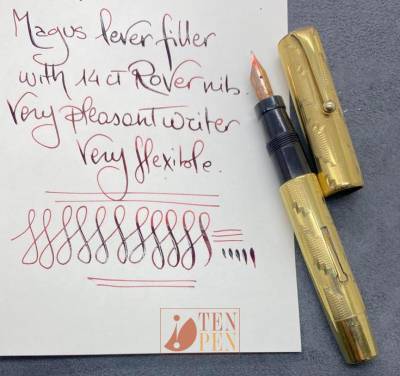 Magus lever filler
with 14 ct Rover nib.
Very pleasant writer
Very flexible.
TEN
PEN